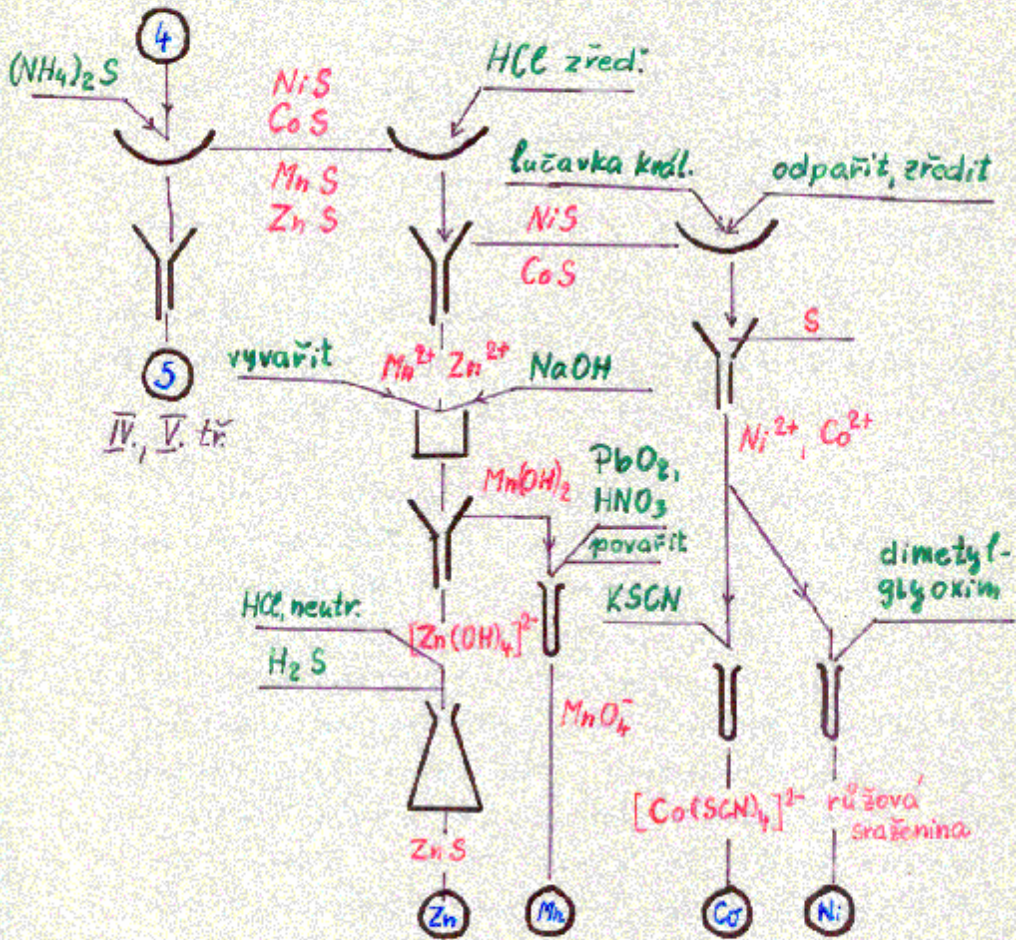 4
(NH₄)₂S
NiS
CoS
MnS
ZnS
HCl zřeď.
lučavka král.
odpařit, zředit
NiS
CoS
S
5
IV., V. tř.
vyvařit
Mn²⁺ Zn²⁺
NaOH
Ni²⁺, Co²⁺
Mn(OH)₂
PbO₂,
HNO₃
povařit
HCl, neutr.
[Zn(OH)₄]²⁻
H₂S
KSCN
dimetyl-
glyoxim
MnO₄⁻
[Co(SCN)₄]²⁻
růžová
sraženina
ZnS
Zn
Mn
Co
Ni